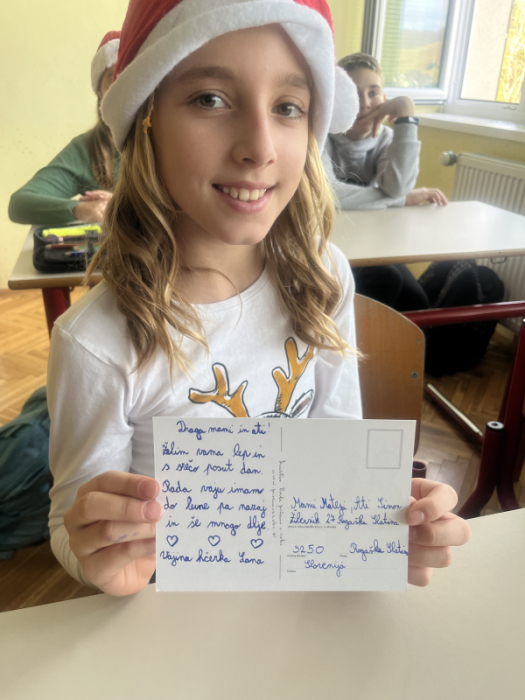 Draga mami in ati!
Želim vama lep in
s srečo posut dan.
Rada vaju imam
do lune pa nazaj
in še mnogo dlje
Vajina hčerka Lana
Mami Mateja, Ati Simon
Žibernik 27 Rogaška Slatina
3250 Rogaška Slatina
Slovenija